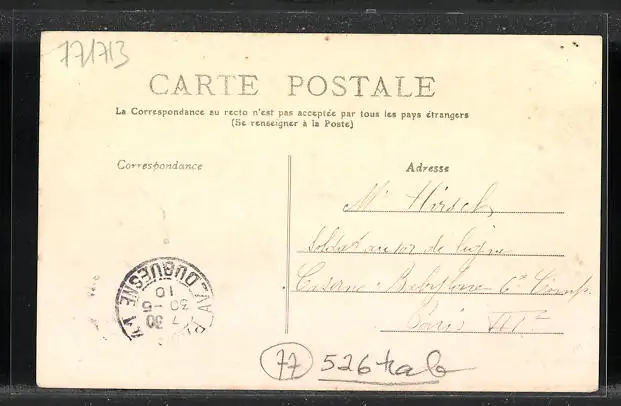 771713
CARTE POSTALE
La Correspondance au recto n'est pas acceptée par tous les pays étrangers
(Se renseigner à la Poste)
Correspondance
Adresse
Mr Hirsch
Soldat au de ligne
Caserne Babylone 6e Comp.
Paris VIIe
AV. DUQUESNE
7 30
30 - 5
10
77 526